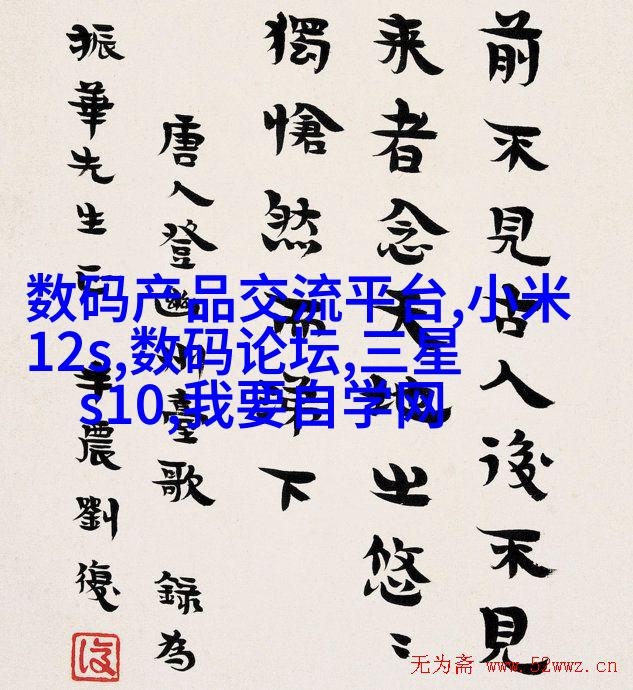 前不見古人後不見
来者念天地之悠〻
獨愴然而涕下
唐人登幽州臺歌 錄為
振華先生正 半農劉復
数码产品交流平台,小米
12s,数码论坛,三星
s10,我要自学网
无为斋 www.52wwz.cn